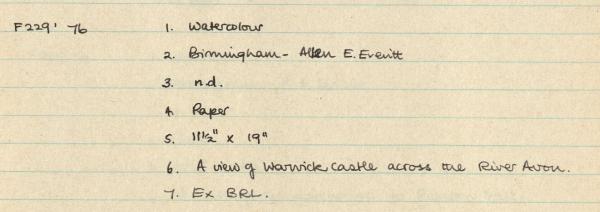 F229' 76 1. Watercolour
2. Birmingham - Allen E. Everitt
3. n.d.
4. Paper
5. 11½" x 19"
6. A view of Warwick Castle across the River Avon.
7. Ex BRL.